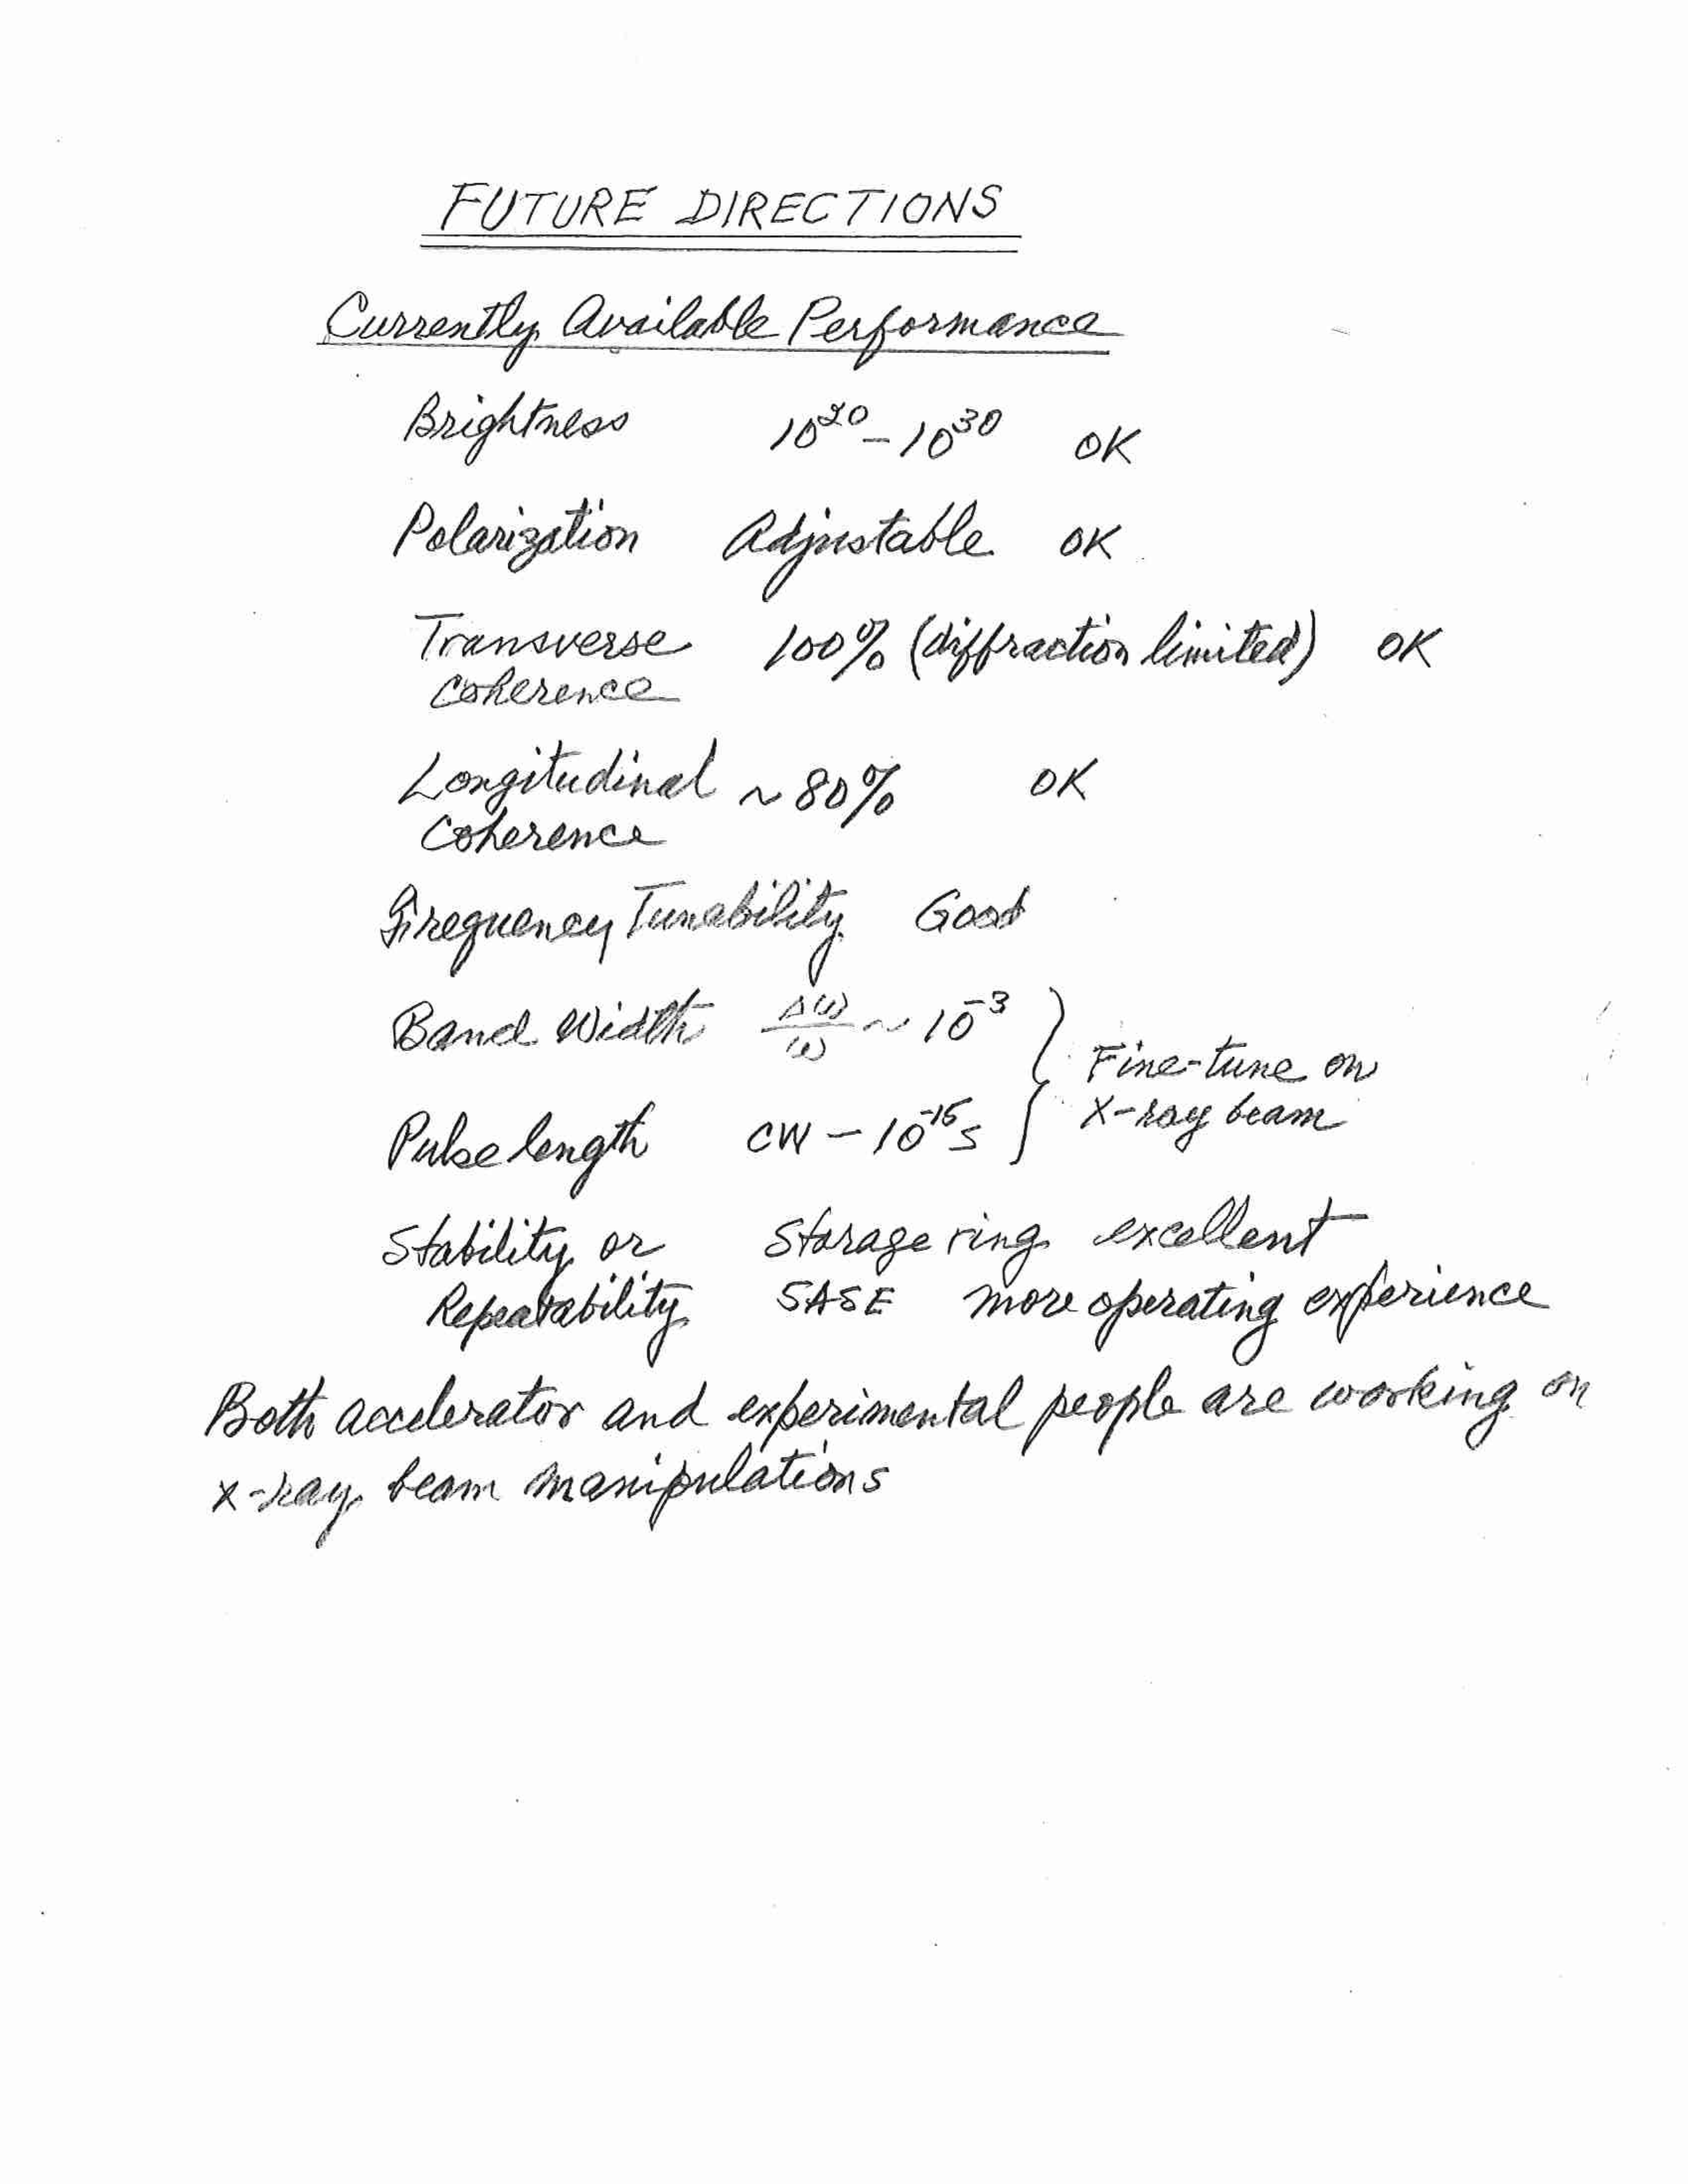 FUTURE DIRECTIONS
Currently Available Performance
Brightness 10²⁰ – 10³⁰ OK
Polarization Adjustable OK
Transverse 100% (diffraction limited) OK
Coherence
Longitudinal ~ 80% OK
Coherence
Frequency Tunability Good
Band Width Δω/ω ~ 10⁻³
Fine-tune on
X-ray beam
Pulse length CW – 10⁻¹⁵ s
Stability or Storage ring excellent
Repeatability SASE more operating experience
Both accelerator and experimental people are working on
x-ray beam manipulations